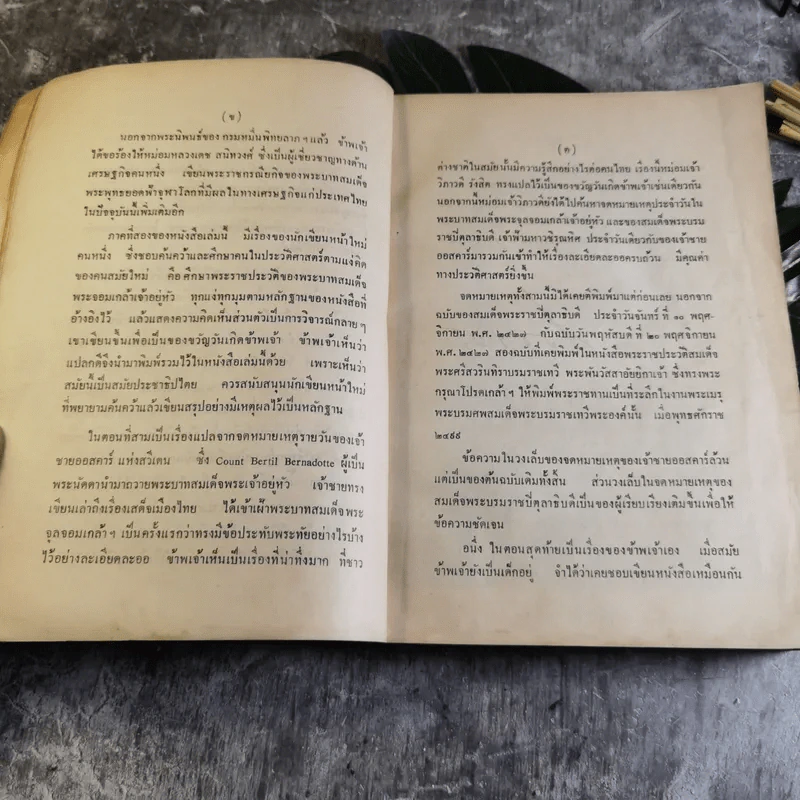 (ข)
นอกจากพระนิพนธ์ของ กรมหมื่นพิทยลาภ ฯ แล้ว ข้าพเจ้า
ได้ขอร้องให้หม่อมหลวงเดช สนิทวงศ์ ซึ่งเป็นผู้เชี่ยวชาญทางด้าน
เศรษฐกิจคนหนึ่ง เขียนพระราชกรณียกิจของพระบาทสมเด็จ
พระพุทธยอดฟ้าจุฬาโลกที่มีผลในทางเศรษฐกิจแก่ประเทศไทย
ในปัจจุบันนี้เพิ่มเติมอีก
ภาคที่สองของหนังสือเล่มนี้ มีเรื่องของนักเขียนหน้าใหม่
คนหนึ่ง ซึ่งชอบค้นคว้าและศึกษาคนในประวัติศาสตร์ตามแง่คิด
ของคนสมัยใหม่ คือ ศึกษาพระราชประวัติของพระบาทสมเด็จ
พระจอมเกล้าเจ้าอยู่หัว ทุกแง่ทุกมุมตามหลักฐานของหนังสือที่
อ้างอิงไว้ แล้วแสดงความคิดเห็นส่วนตัวเป็นการวิจารณ์กลาย ๆ
เขาเขียนขึ้นเพื่อเป็นของขวัญวันเกิดข้าพเจ้า ข้าพเจ้าเห็นว่า
แปลกดีจึงนำมาพิมพ์รวมไว้ในหนังสือเล่มนี้ด้วย เพราะเห็นว่า
สมัยนี้เป็นสมัยประชาธิปไตย ควรสนับสนุนนักเขียนหน้าใหม่
ที่พยายามค้นคว้าแล้วเขียนสรุปอย่างมีเหตุผลไว้เป็นหลักฐาน
ในตอนที่สามเป็นเรื่องแปลจากจดหมายเหตุรายวันของเจ้า
ชายออสคาร์ แห่งสวีเดน ซึ่ง Count Bertil Bernadotte ผู้เป็น
พระนัดดานำมาถวายพระบาทสมเด็จพระเจ้าอยู่หัว เจ้าชายทรง
เขียนเล่าถึงเรื่องเสด็จเมืองไทย ได้เข้าเฝ้าพระบาทสมเด็จพระ
จุลจอมเกล้า ฯ เป็นครั้งแรกว่าทรงมีข้อประทับพระทัยอย่างไรบ้าง
ไว้อย่างละเอียดละออ ข้าพเจ้าเห็นเป็นเรื่องที่น่าทึ่งมาก ที่ชาว
(ค)
ต่างชาติในสมัยนั้นมีความรู้สึกอย่างไรต่อคนไทย เรื่องนี้หม่อมเจ้า
วิภาวดี รังสิต ทรงแปลไว้เป็นของขวัญวันเกิดข้าพเจ้าเช่นเดียวกัน
นอกจากนี้หม่อมเจ้าวิภาวดียังได้ไปค้นหาจดหมายเหตุประจำวันใน
พระบาทสมเด็จพระจุลจอมเกล้าเจ้าอยู่หัว และของสมเด็จพระบรม
ราชปิตุลาธิบดี เจ้าฟ้ามหาวชิรุณหิศ ประจำวันเดียวกับของเจ้าชาย
ออสคาร์มารวมกันเข้าทำให้เรื่องละเอียดละออครบถ้วน มีคุณค่า
ทางประวัติศาสตร์ยิ่งขึ้น
จดหมายเหตุทั้งสามนี้มิได้เคยตีพิมพ์มาแต่ก่อนเลย นอกจาก
ฉบับของสมเด็จพระบรมราชปิตุลาธิบดี ประจำวันจันทร์ ที่ ๑๐ พฤศ-
จิกายน พ.ศ. ๒๔๒๗ กับฉบับวันพฤหัสบดี ที่ ๒๐ พฤศจิกายน
พ.ศ. ๒๔๒๗ สองฉบับที่เคยพิมพ์ในหนังสือพระราชประวัติสมเด็จ
พระศรีสวรินทิราบรมราชเทวี พระพันวัสสาอัยยิกาเจ้า ซึ่งทรงพระ
กรุณาโปรดเกล้า ฯ ให้พิมพ์พระราชทานเป็นที่ระลึกในงานพระเมรุ
พระบรมศพสมเด็จพระบรมราชเทวีพระองค์นั้น เมื่อพุทธศักราช
๒๔๙๙
ข้อความในวงเล็บของจดหมายเหตุของเจ้าชายออสคาร์ล้วน
แต่เป็นของต้นฉบับเดิมทั้งสิ้น ส่วนวงเล็บในจดหมายเหตุของ
สมเด็จพระบรมราชปิตุลาธิบดีเป็นของผู้เรียบเรียงเติมขึ้นเพื่อให้
ข้อความชัดเจน
อนึ่ง ในตอนสุดท้ายเป็นเรื่องของข้าพเจ้าเอง เมื่อสมัย
ข้าพเจ้ายังเป็นเด็กอยู่ จำได้ว่าเคยชอบเขียนหนังสือเหมือนกัน